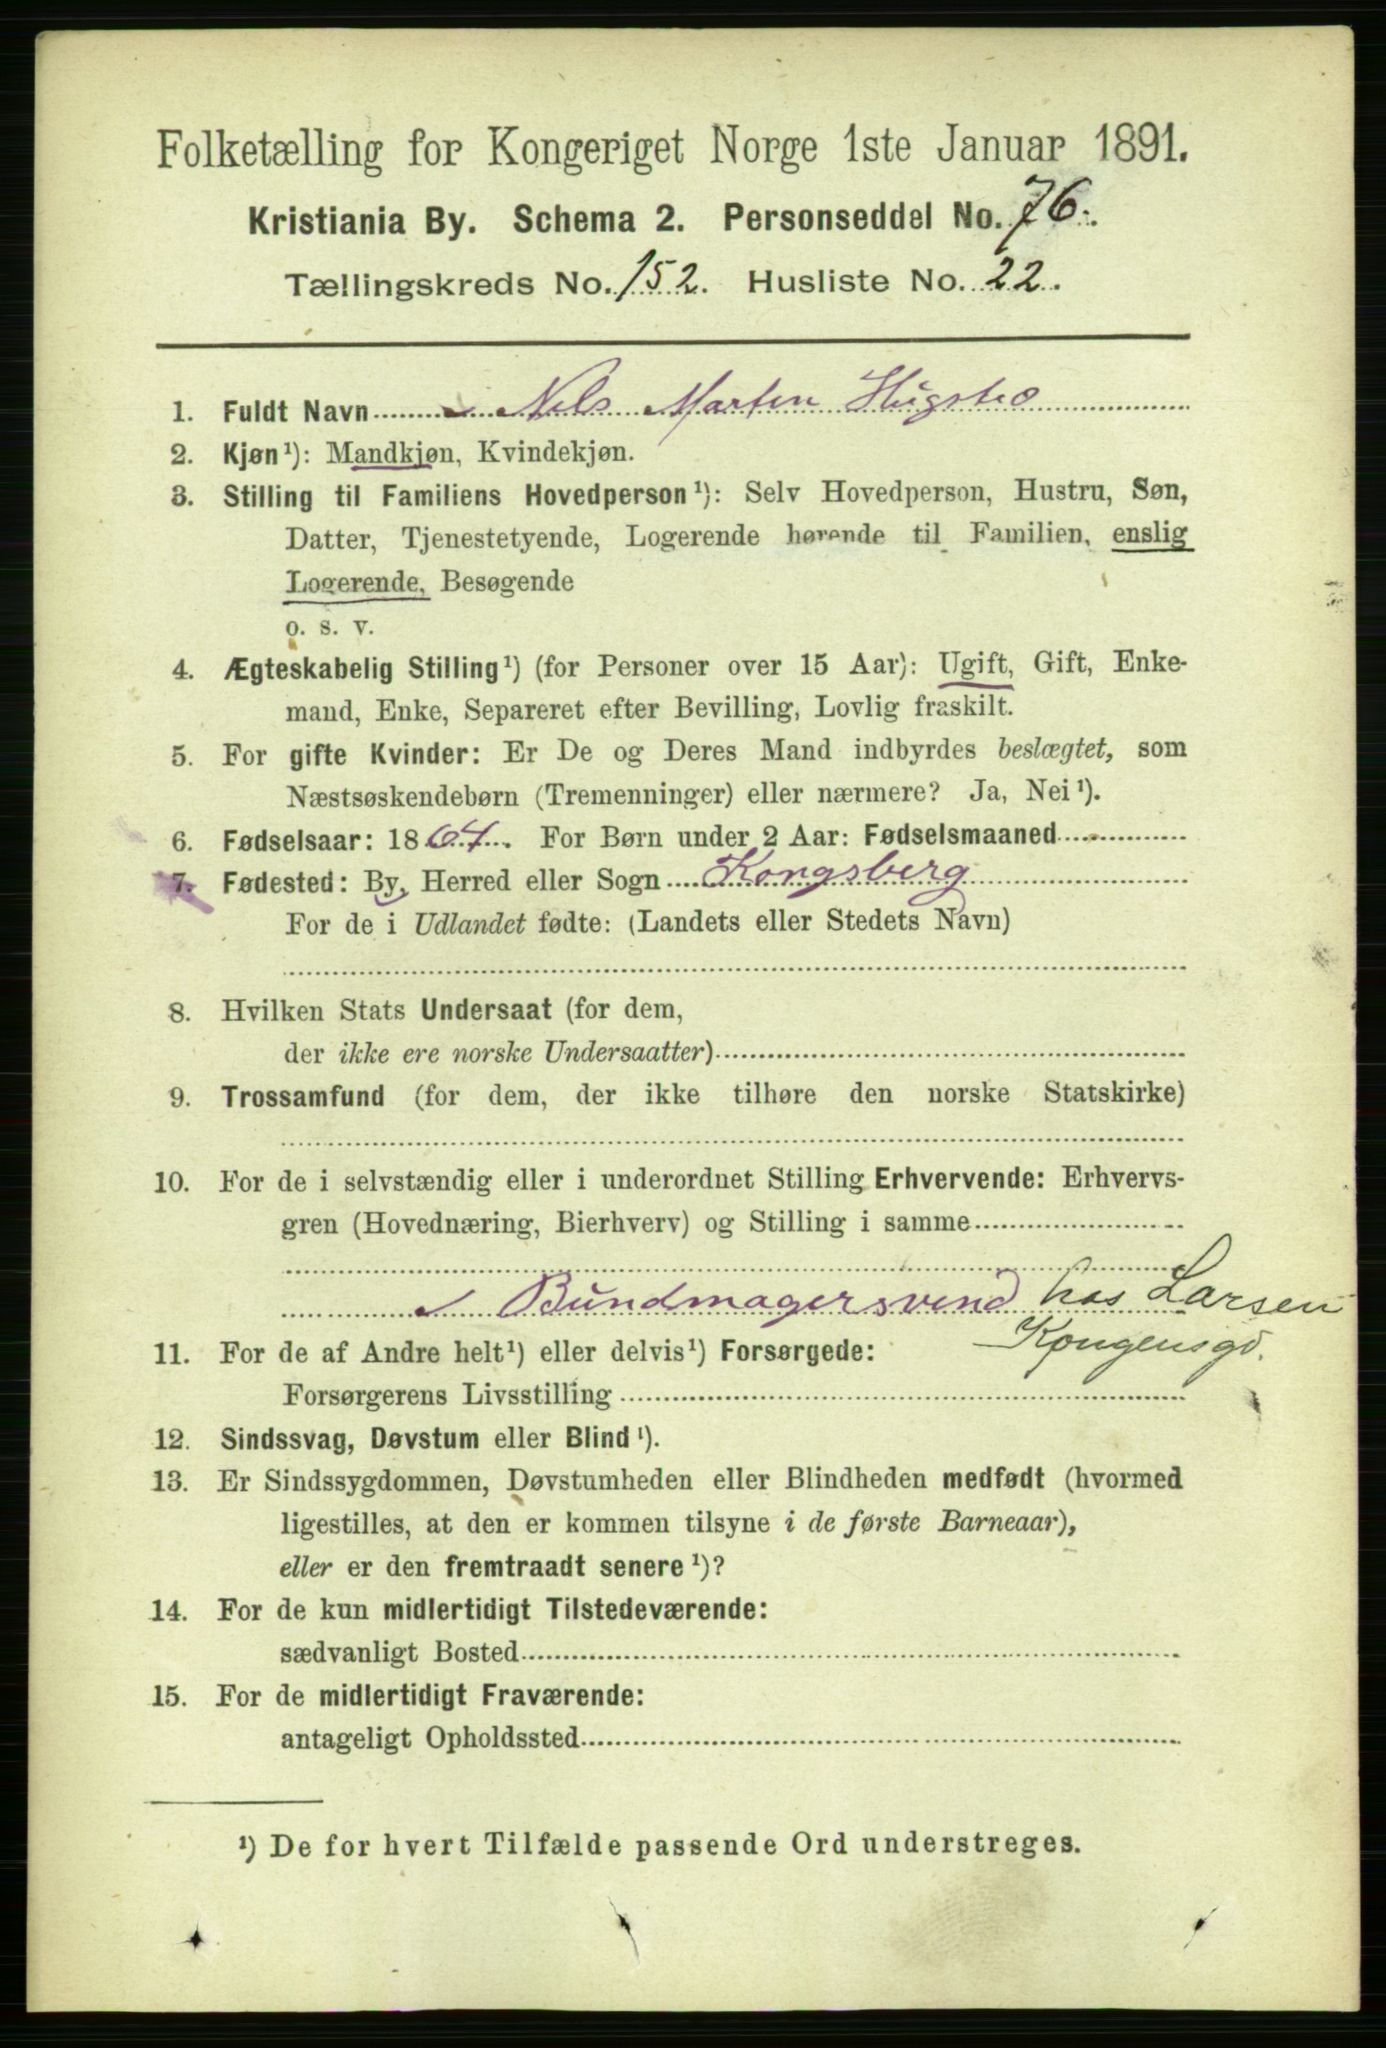 Folketælling for Kongeriget Norge 1ste Januar 1891.
Kristiania By. Schema 2. Personseddel No. 76.
Tællingskreds No. 152. Husliste No. 22.
1. Fuldt Navn Nels Marten Hugsted
2. Kjøn¹): Mandkjøn, Kvindekjøn.
3. Stilling til Familiens Hovedperson¹): Selv Hovedperson, Hustru, Søn,
Datter, Tjenestetyende, Logerende hørende til Familien, enslig
Logerende, Besøgende
o. s. v.
4. Ægteskabelig Stilling¹) (for Personer over 15 Aar): Ugift, Gift, Enke-
mand, Enke, Separeret efter Bevilling, Lovlig fraskilt.
5. For gifte Kvinder: Er De og Deres Mand indbyrdes beslægtet, som
Næstsøskendebørn (Tremenninger) eller nærmere? Ja, Nei¹).
6. Fødselsaar: 1864. For Børn under 2 Aar: Fødselsmaaned
7. Fødested: By, Herred eller Sogn Kongsberg
For de i Udlandet fødte: (Landets eller Stedets Navn)
8. Hvilken Stats Undersaat (for dem,
der ikke ere norske Undersaatter)
9. Trossamfund (for dem, der ikke tilhøre den norske Statskirke)
10. For de i selvstændig eller i underordnet Stilling Erhvervende: Erhvervs-
gren (Hovednæring, Bierhverv) og Stilling i samme
Bundmagersvend hos Larsen
Kongensgd.
11. For de af Andre helt¹) eller delvis¹) Forsørgede:
Forsørgerens Livsstilling
12. Sindssvag, Døvstum eller Blind¹).
13. Er Sindssygdommen, Døvstumheden eller Blindheden medfødt (hvormed
ligestilles, at den er kommen tilsyne i de første Barneaar),
eller er den fremtraadt senere¹)?
14. For de kun midlertidigt Tilstedeværende:
sædvanligt Bosted
15. For de midlertidigt Fraværende:
antageligt Opholdssted
¹) De for hvert Tilfælde passende Ord understreges.